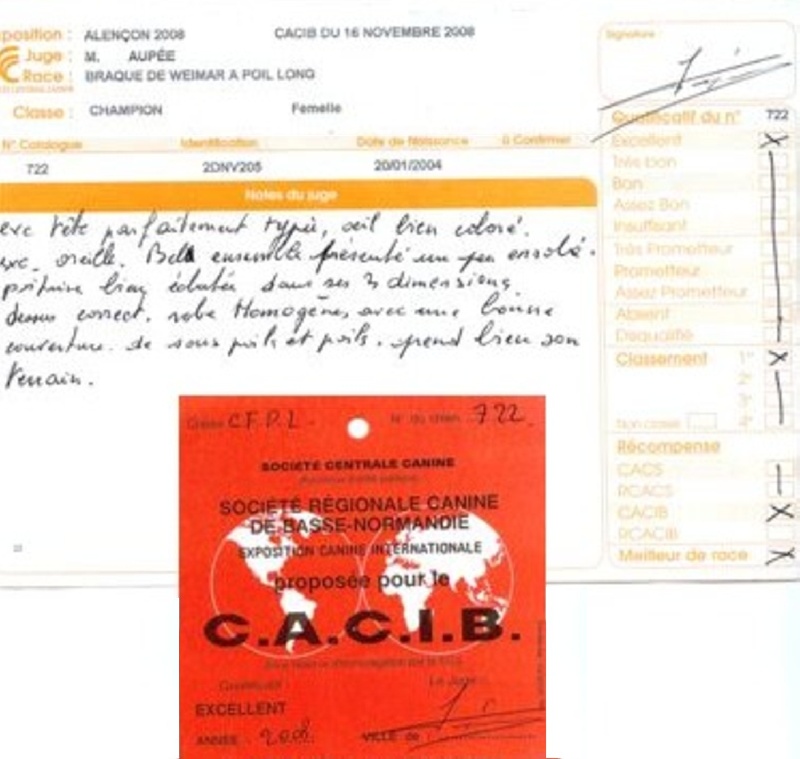 position : ALENÇON 2008 CACIB DU 16 NOVEMBRE 2008
Juge : M. AUPÉE
Race : BRAQUE DE WEIMAR A POIL LONG
Classe : CHAMPION Femelle
N° Catalogue Identification Date de Naissance à Confirmer
722 2DNV205 20/01/2004
Notes du juge
exc tête parfaitement typée, oeil bien coloré.
exc. oreille. Bel ensemble présenté un peu ensolé.
poitrine bien éclatée dans ses 3 dimensions
dessus correct. robe Homogène, avec une bonne
couverture de sous poils et poils. prend bien son
terrain.
Signature :
Qualificatif du n° 722
Excellent X
Très bon
Bon
Assez Bon
Insuffisant
Très Prometteur
Prometteur
Assez Prometteur
Absent
Disqualifié
Classement 1° X
2°
3°
Non classé 4°
Récompense
CACS
RCACS
CACIB X
RCACIB
Meilleur de race X
Classe C.F.P.L. N° du chien 722
SOCIÉTÉ CENTRALE CANINE
SOCIÉTÉ RÉGIONALE CANINE
DE BASSE-NORMANDIE
EXPOSITION CANINE INTERNATIONALE
proposée pour le
C.A.C.I.B.
Qualificatif Le Juge
EXCELLENT
ANNÉE 2008 VILLE de